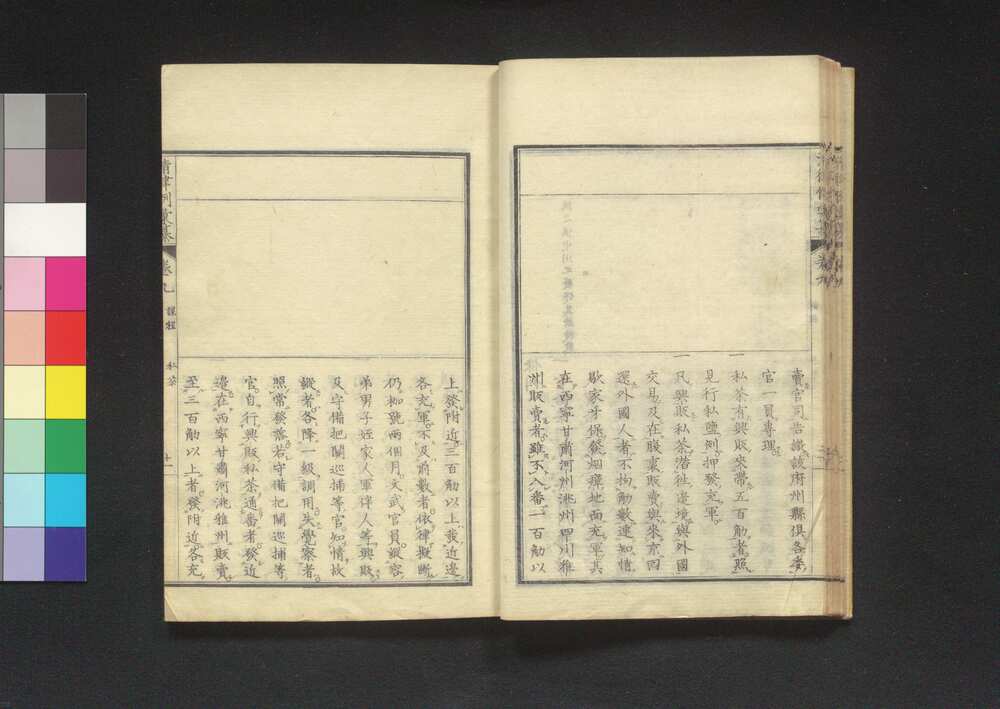 賣官司告識該府州縣俱各委
官一員專理
一私茶有興販夾帶五百觔者照
見行私鹽例押發充軍
一凡興販私茶潛徃邊境與外國
交易及在腹裏販賣與來京回
還外國人者不拘觔數連知情
歇家牙保發烟瘴地面充軍其
在西寧甘肅河州洮州四川雅
州販賣者雖不入番一百觔以
上發附近三百觔以上發近邊
各充軍不及前數者依律擬斷
仍枷號兩個月文武官員縱容
弟男子姪家人軍伴人等興販
及守備把關巡捕等官知情故
縱者各降一級調用失覺察者
照常發落若守備把關巡捕等
官自行興販私茶通番者發近
邊在西寧甘肅河洮雅州販賣
至三百觔以上者發附近各充
清律例彙纂
卷九
課程
私茶
十一